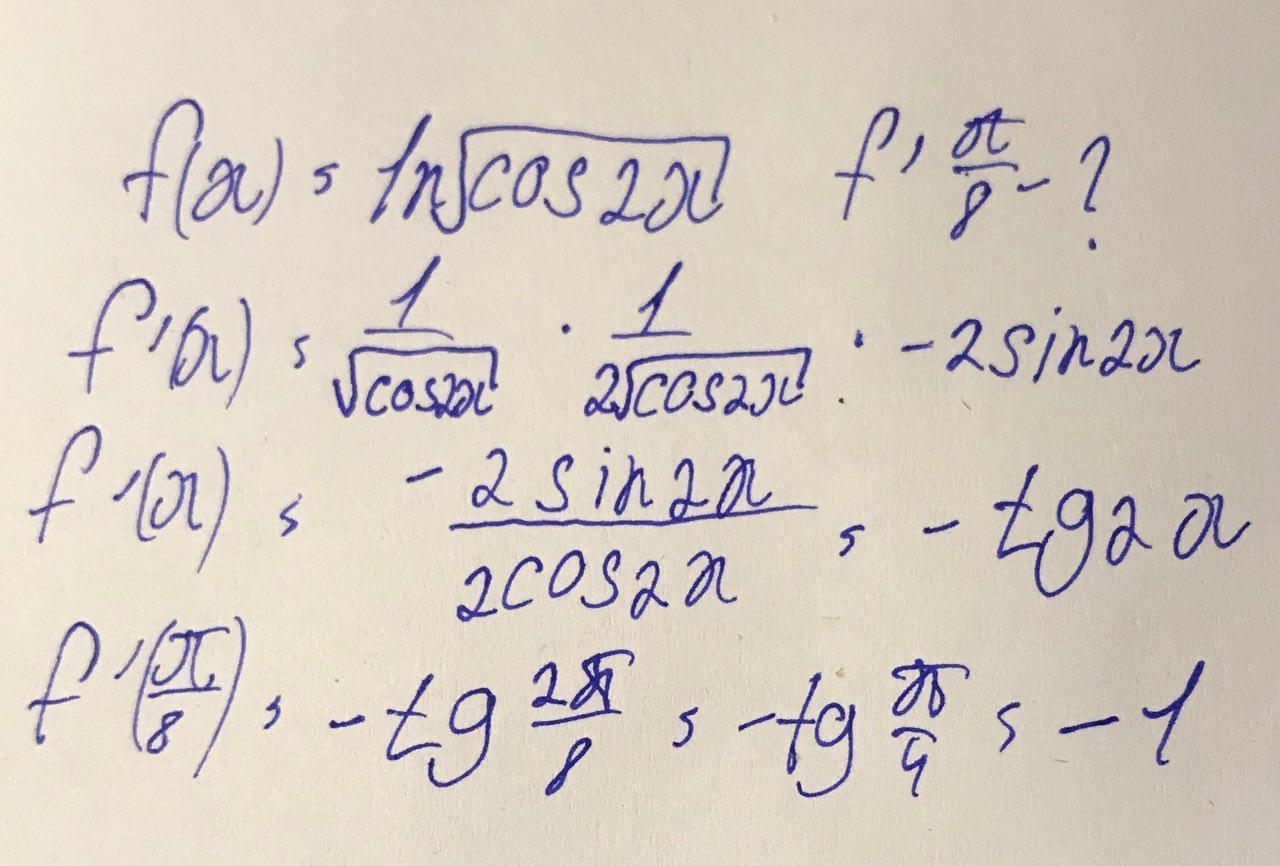 f(x) = ln√(cos 2x) f' π/8 - ?
f'(x) = 1/√(cos2x) · 1/(2√(cos2x)) · -2sin2x
f'(x) = -2sin2x/2cos2x = -tg2x
f'(π/8) = -tg 2π/8 = -tg π/4 = -1